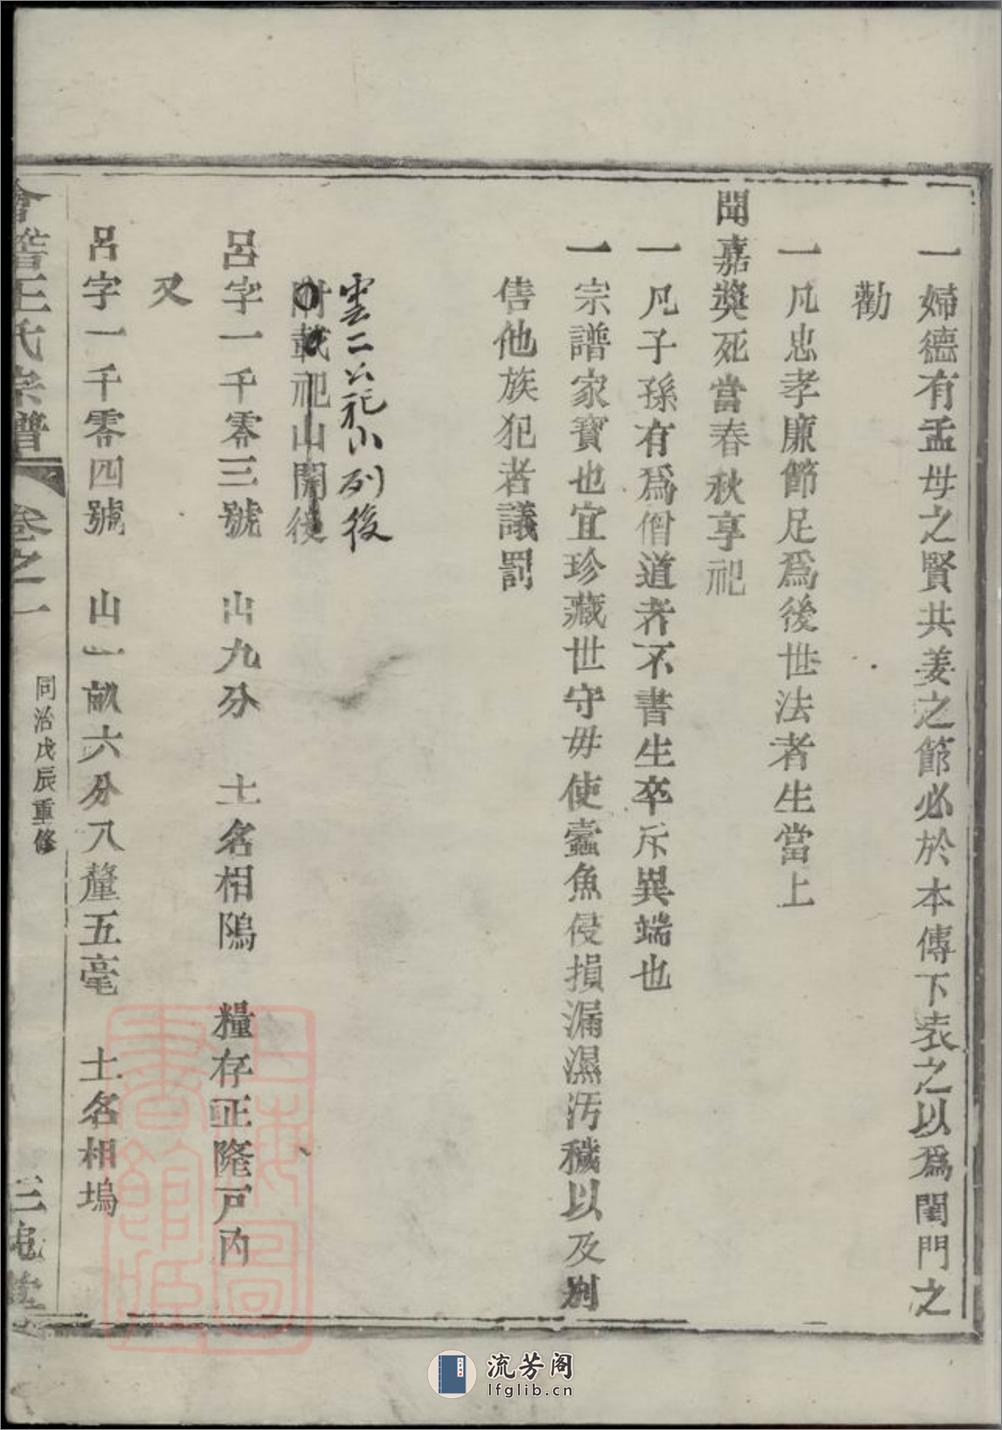 一婦德有孟母之賢共姜之節必於本傳下表之以爲閨門之
勸
一凡忠孝廉節足爲後世法者生當上
聞嘉獎死當春秋享祀
一凡子孫有爲僧道者不書生卒斥異端也
一宗譜家寶也宜珍藏世守毋使蠹魚侵損漏濕汚穢以及別
售他族犯者議罰
雲二公祀山列後
附載祀山開後
呂字一千零三號 山九分 土名相隝 糧存正隆戸內
又
呂字一千零四號 山一畝六分八釐五毫 土名相塢
會稽王氏宗譜 卷之一 同治戊辰重修 三槐堂
上海圖書館藏
流芳阁
lfglib.cn